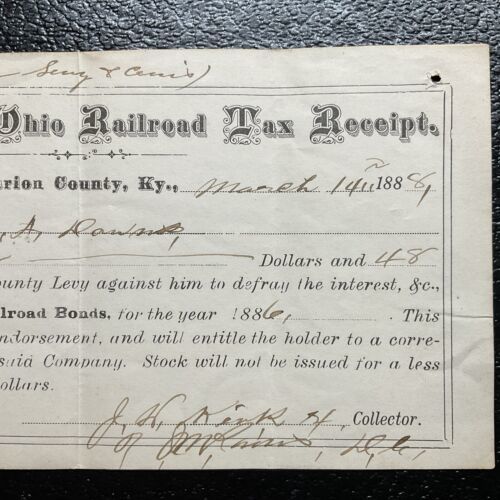 Ohio Railroad Tax Receipt.
arion County, Ky., March 14th 1888,
A. Downs,
Dollars and 48
ounty Levy against him to defray the interest, &c.,
lroad Bonds, for the year 1886, . This
ndorsement, and will entitle the holder to a corre-
said Company. Stock will not be issued for a less
ollars.
J. H. Kirk, Collector.
D. C.